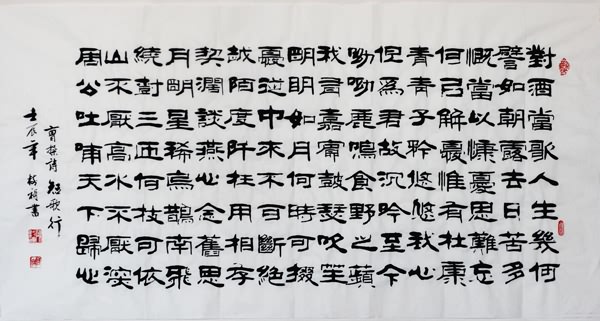 對酒當歌人生幾何
譬如朝露去日苦多
慨當以慷憂思難忘
何以解憂惟有杜康
青青子衿悠悠我心
但為君故沉吟至今
呦呦鹿鳴食野之蘋
我有嘉賓鼓瑟吹笙
明明如月何時可掇
憂從中來不可斷絕
越陌度阡枉用相存
契濶談燕心念舊恩
月明星稀烏鵲南飛
繞樹三匝何枝可依
山不厭高水不厭深
周公吐哺天下歸心
曹操詩短歌行
壬辰年 書